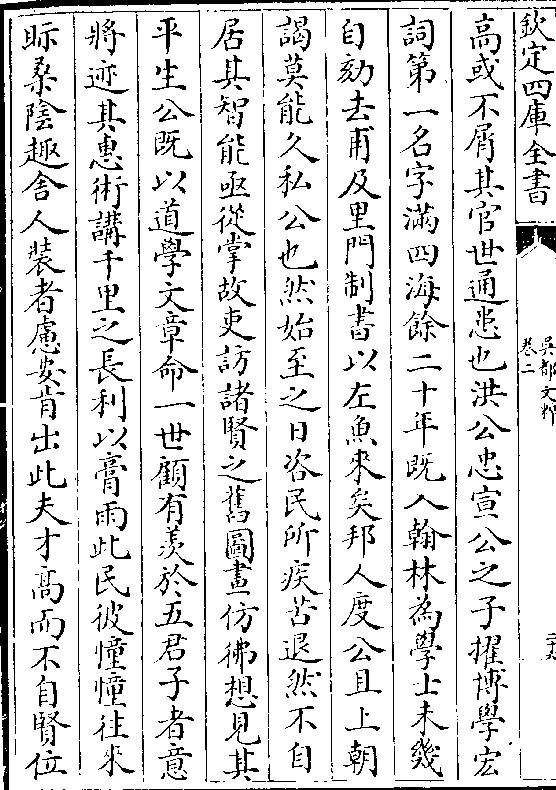 欽定四庫全書
吳都文粹
卷二
高或不屑其官世通患也洪公忠宣公之子擢博學宏
詞第一名字滿四海餘二十年既入翰林為學士未幾
自劾去甫及里門制書以左魚來矣邦人度公且上朝
謁莫能久私公也然始至之日咨民所疾苦退然不自
居其智能亟從掌故吏訪諸賢之舊圖畫仿彿想見其
平生公既以道學文章命一世顧有羨於五君子者意
將迹其惠術講千里之長利以膏雨此民彼憧憧往來
眎桑陰趣舍人裝者慮安肯出此夫才高而不自賢位